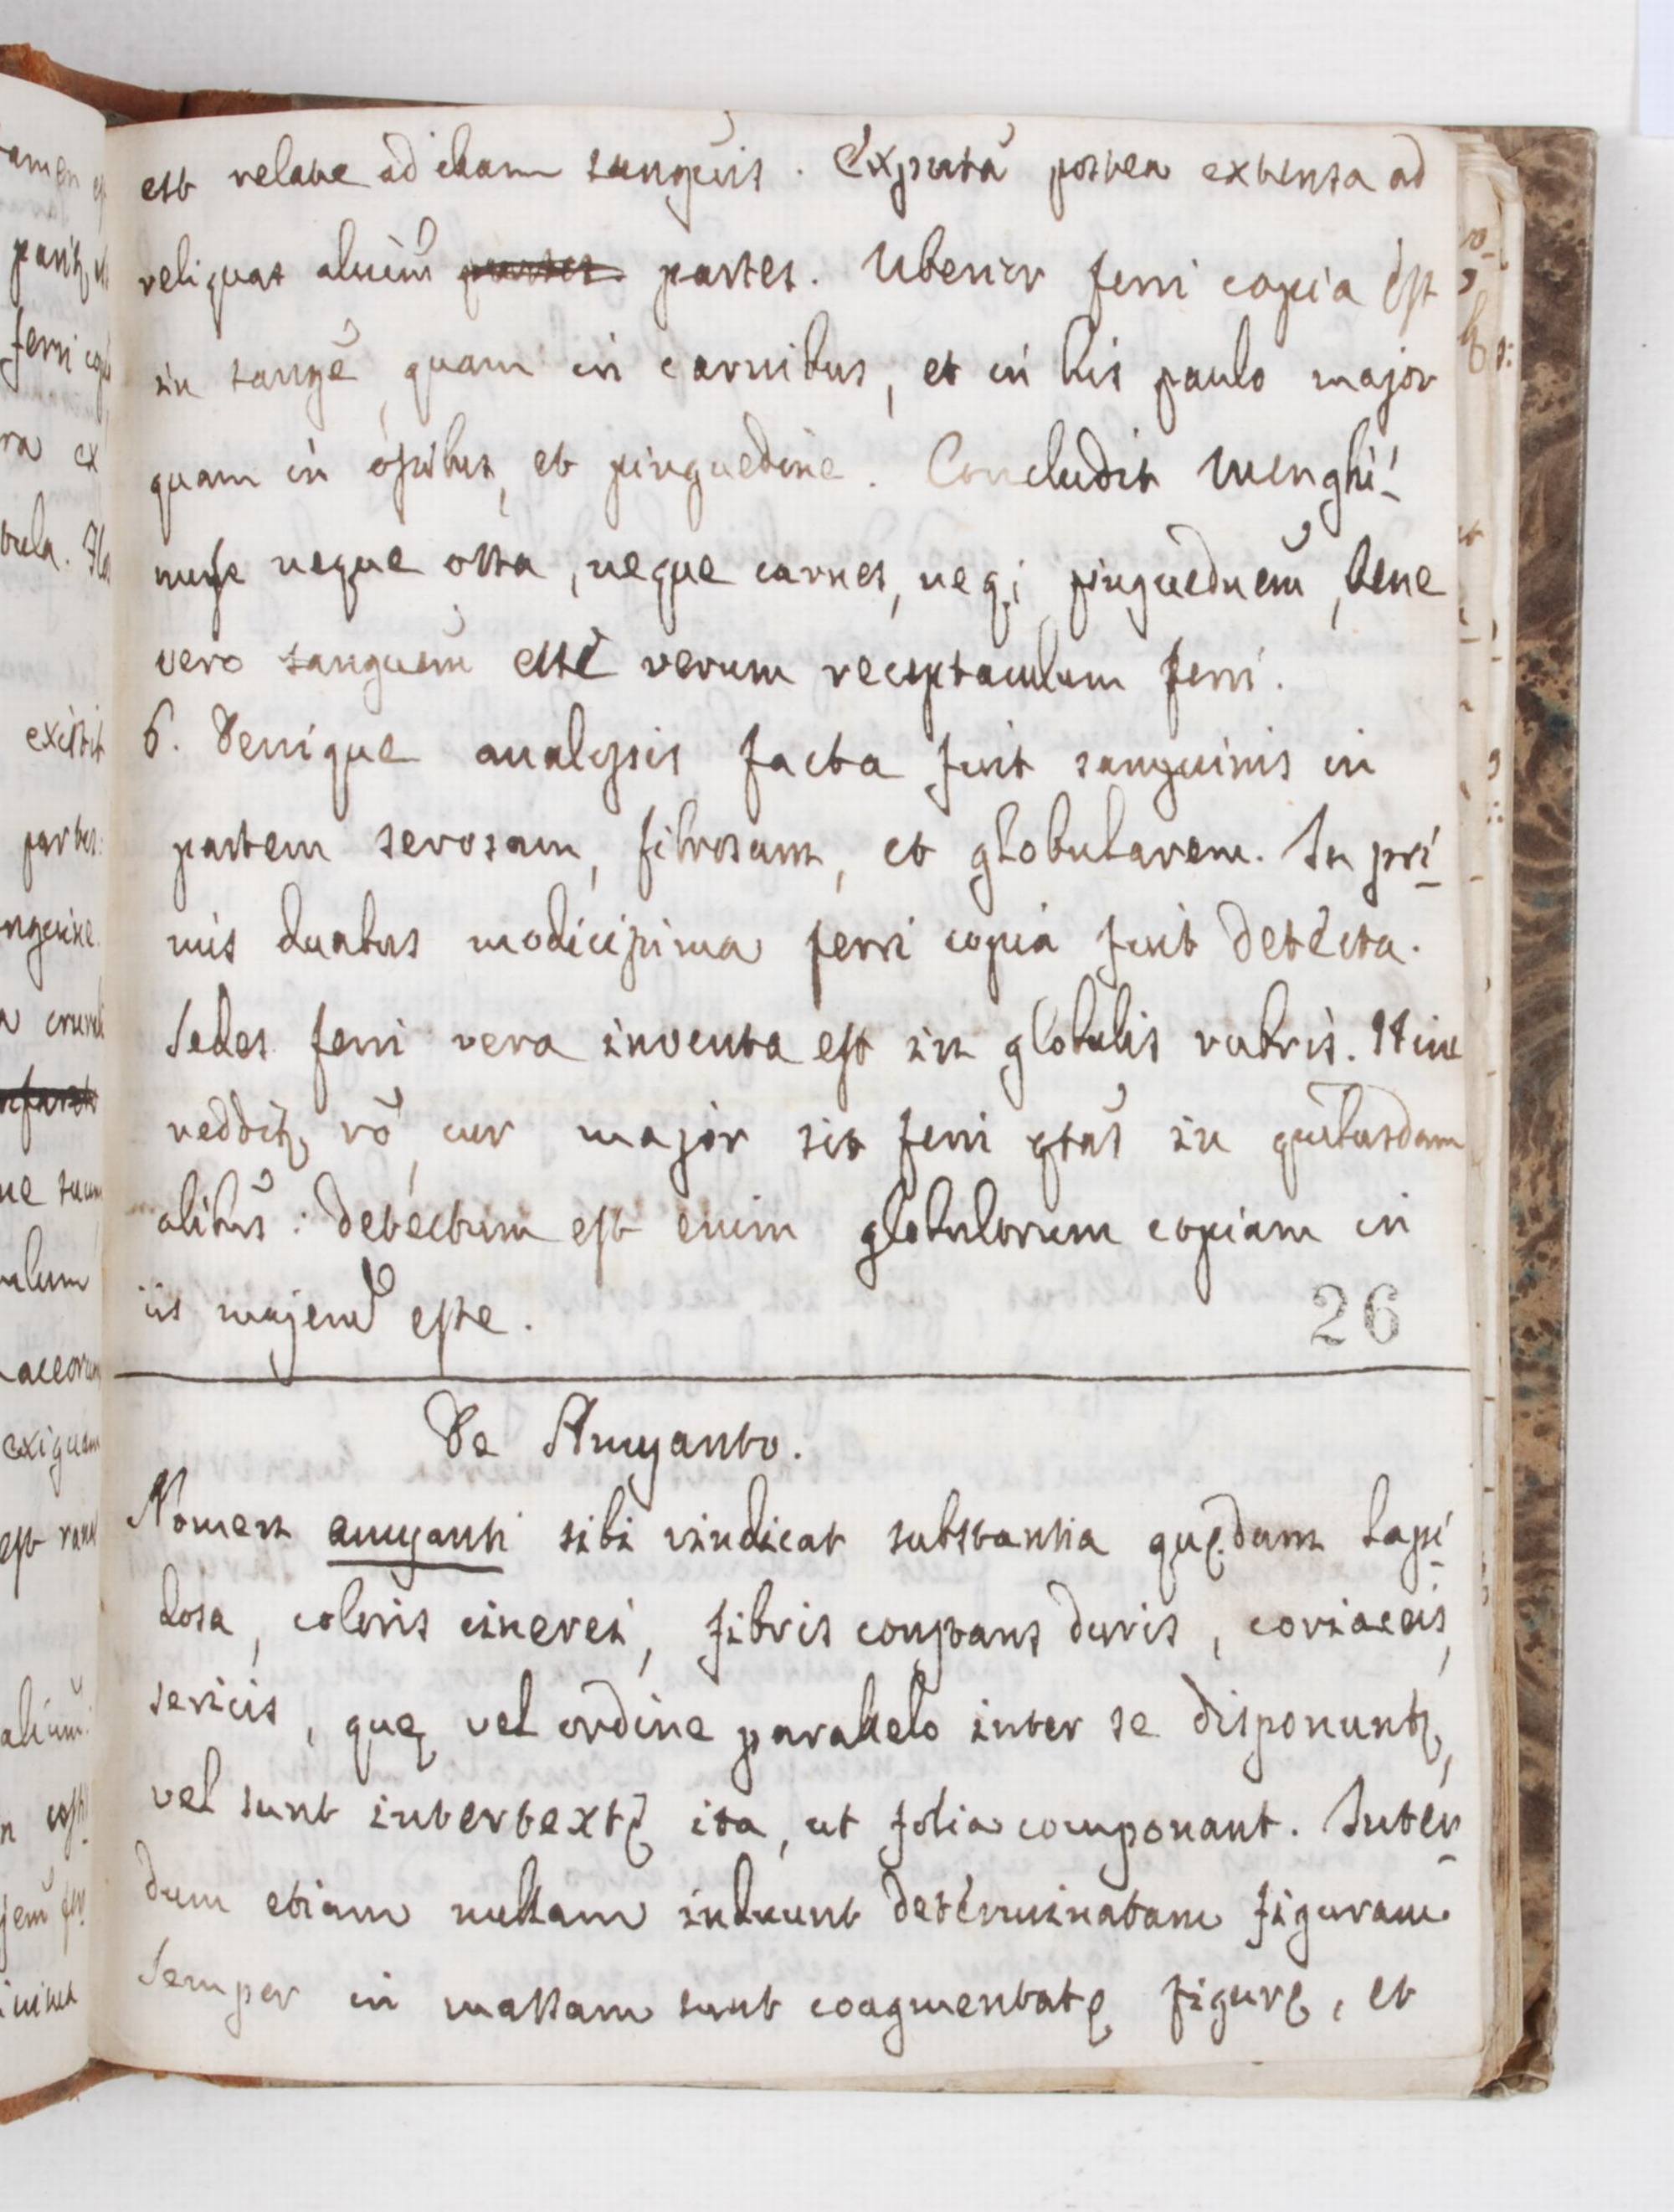 est relate ad illam sanguis. Expnta postea extensa ad
reliquas alium partes. Uberior ferri copia est
in sange, quam in carnibus, et in his paulo major
quam in ossibus, et pinguedine. Concludit Menghi-
nus neque ossa, neque carnes, neq; pinguednem, bene
vero sanguem esse verum receptaculum ferri.
6. Denique analysis facta fuit sanguinis in
partem serosam, fibrosam, et globularem. In pri-
mis duabus modicissima ferri copia fuit detecta.
Sedes ferri vera inventa est in globulis rubris. Hinc
reddit, ro, cur major sit ferri qtas in quibusdam
alibus: detectum est enim globulorum copiam in
iis majem esse.
26
De Amyanto.
Nomen amyanti sibi vindicat substantia quędam lapi-
dosa, coloris cinerei, fibris constans duris, coriaceis,
sericis, quę vel ordine parallelo inter se disponunt,
vel sunt intertextę ita, ut folia componant. Inter-
dum etiam nullam induunt determinatam figuram
Semper in massam sunt coagmentatę figurę, et